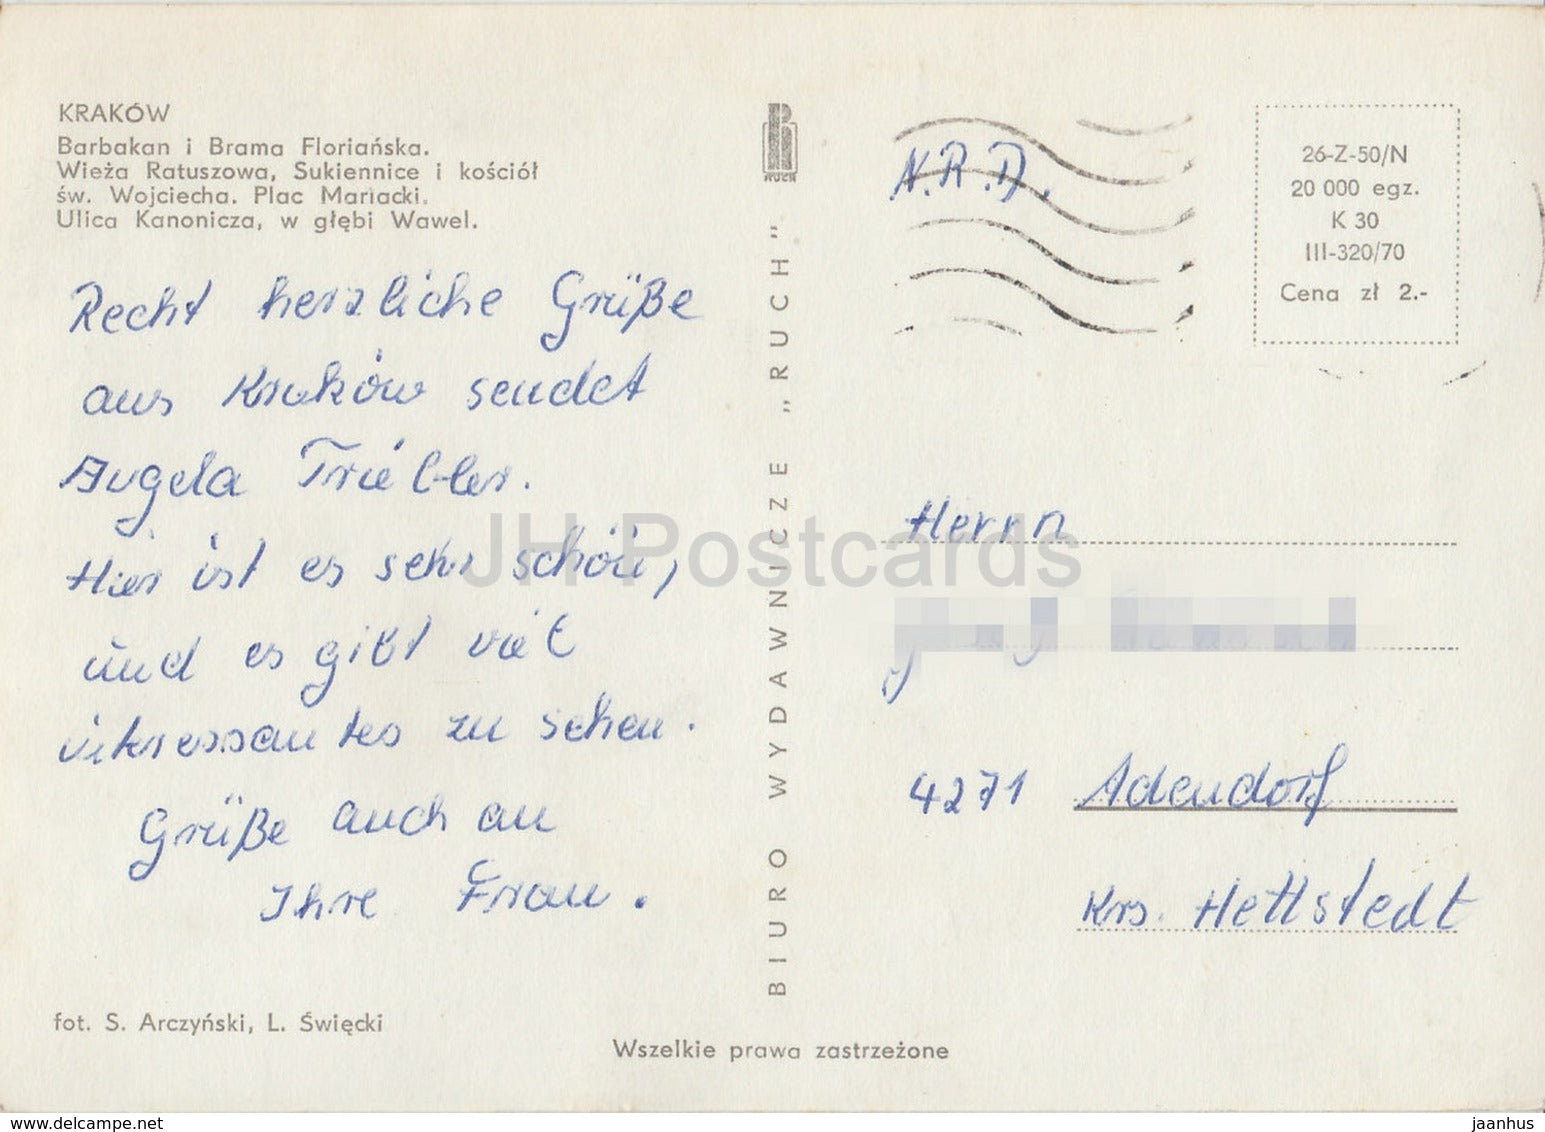 KRAKÓW
Barbakan i Brama Floriańska.
Wieża Ratuszowa, Sukiennice i kościół
św. Wojciecha. Plac Mariacki.
Ulica Kanonicza, w głębi Wawel.
Recht herzliche Grüße
aus Kraków sendet
Angela Triebler.
Hier ist es sehr schön,
und es gibt viel
interessantes zu sehen.
Grüße auch an
Ihre Frau.
fot. S. Arczyński, L. Święcki
RUCH
BIURO WYDAWNICZE „RUCH"
Wszelkie prawa zastrzeżone
N.R.D.
26-Z-50/N
20 000 egz.
K 30
III-320/70
Cena zł 2.-
Herrn
4271 Adendorf
Krs. Hettstedt
JH Postcards
www.delcampe.net
jaanhus